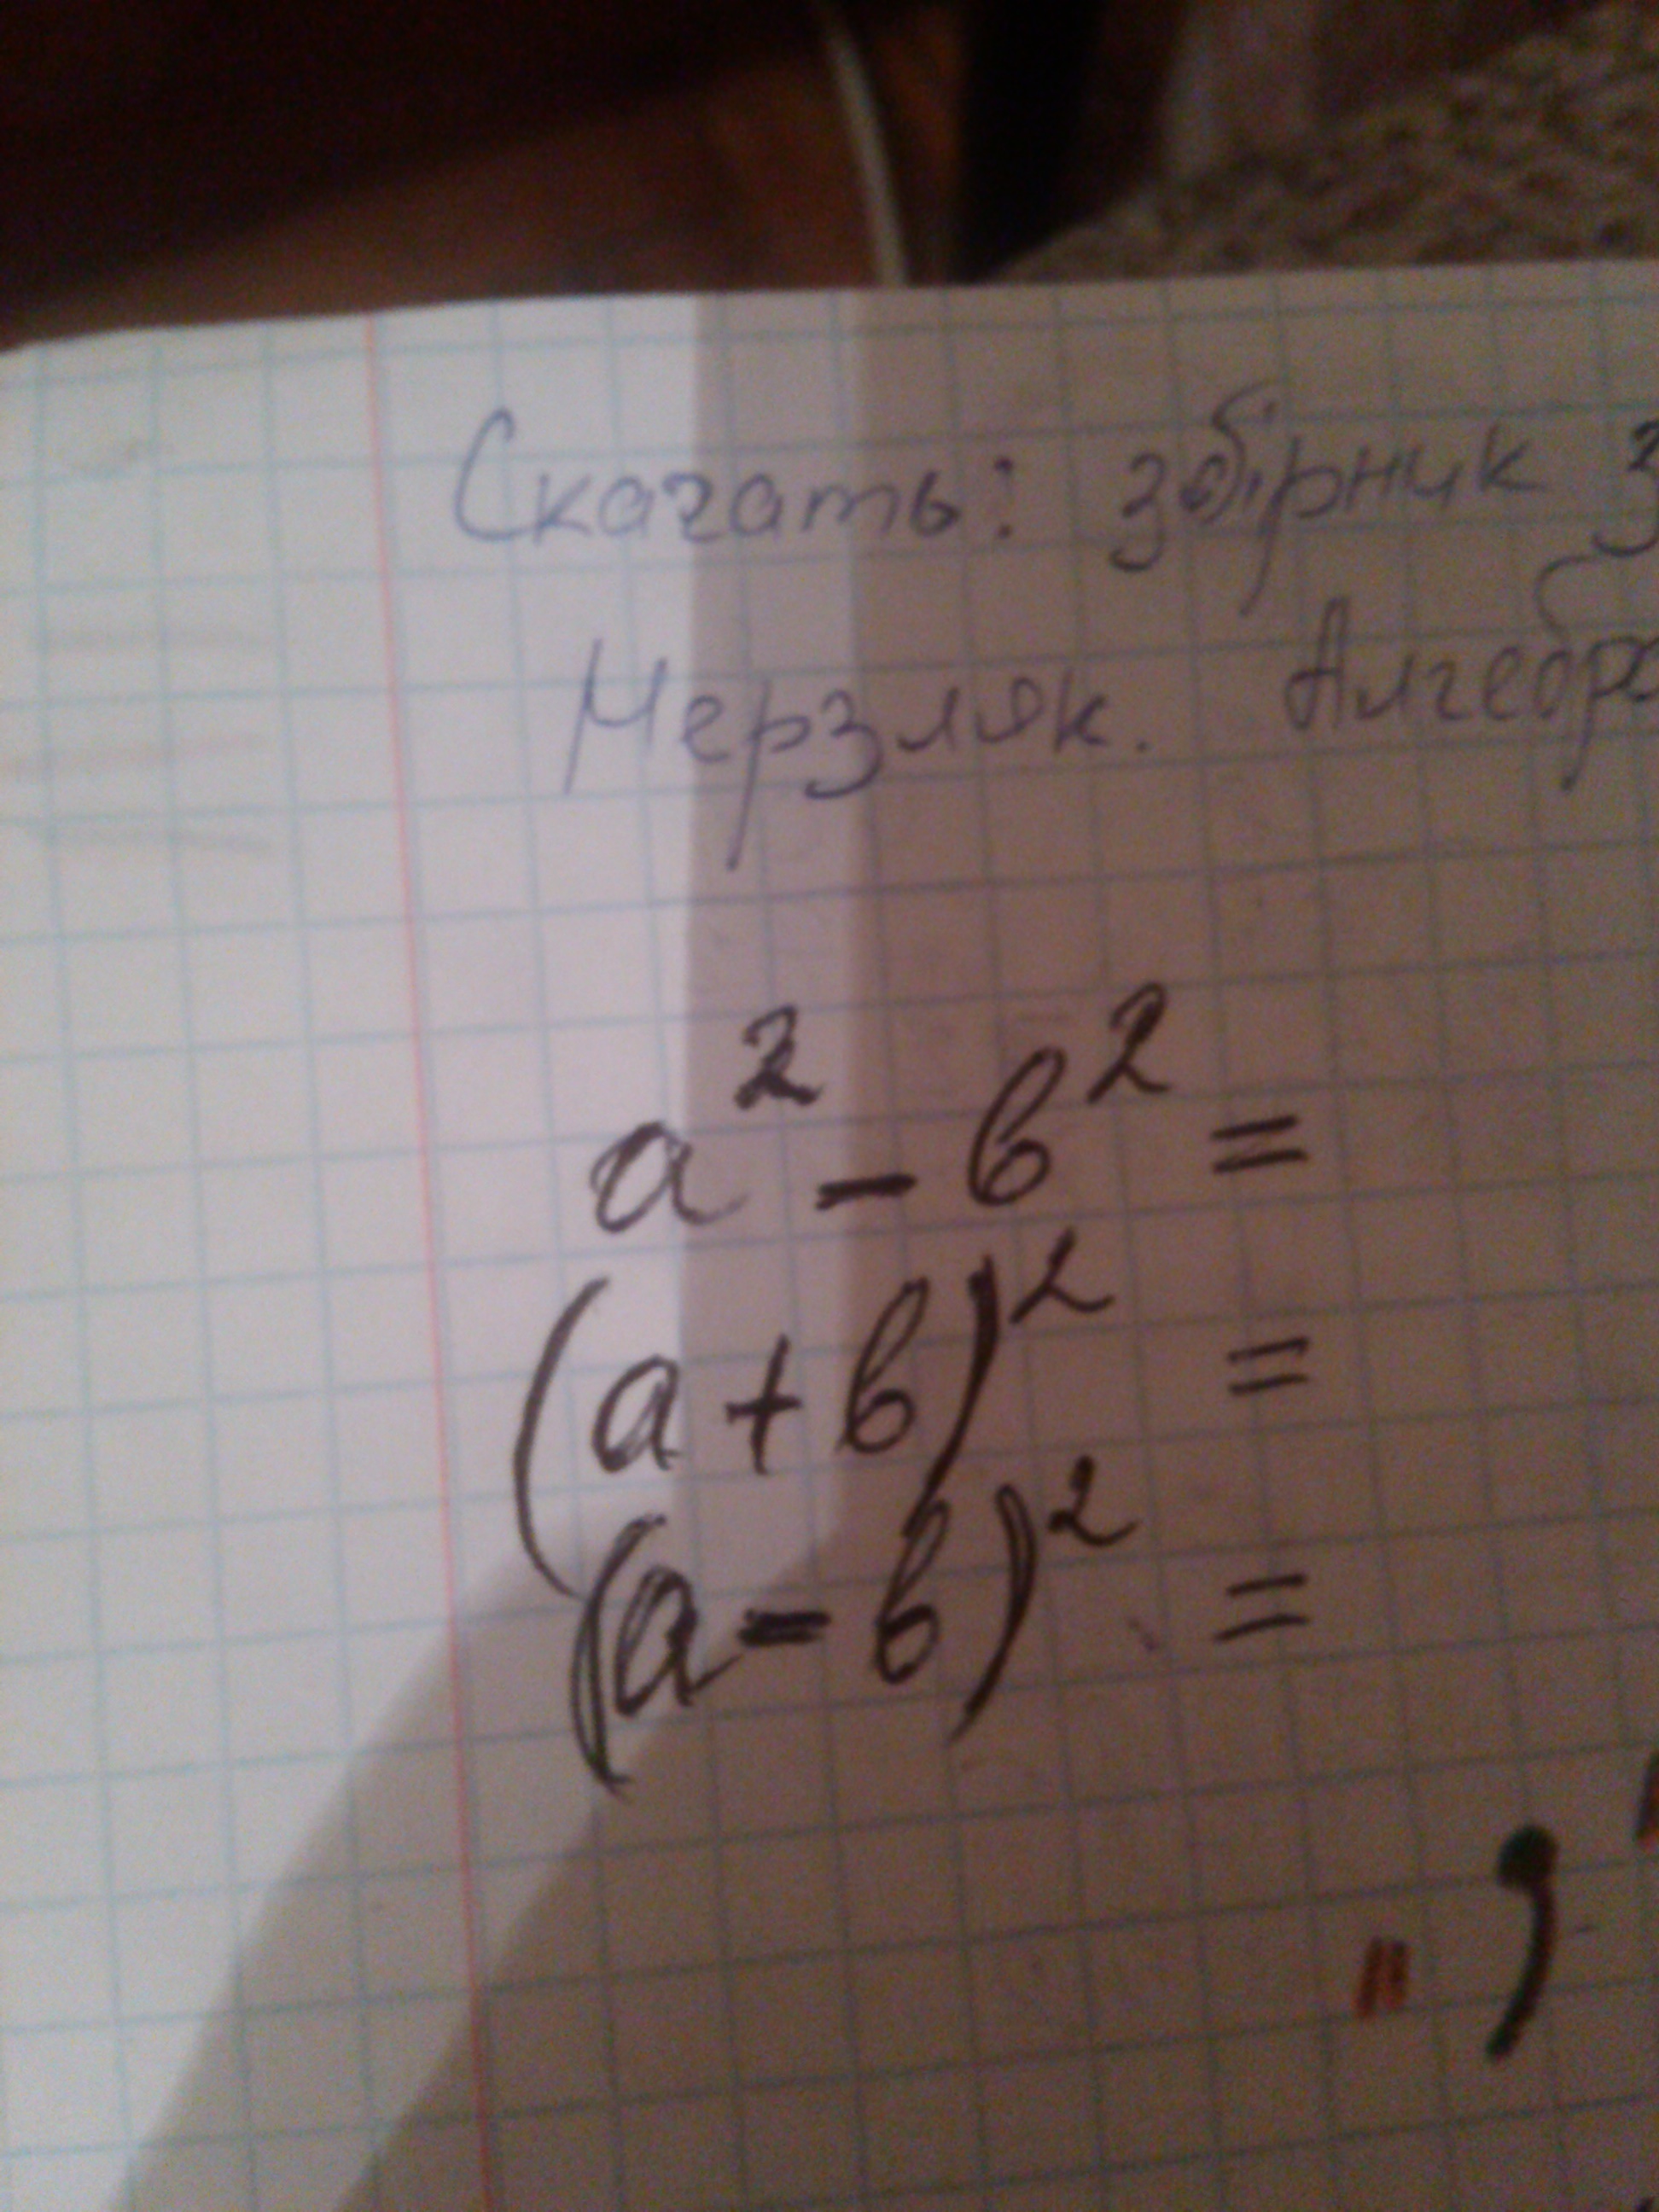 Скачать: збірник з
Мерзляк. Алгебра
a² - b² =
(a + b)² =
(a - b)² =
„ ,